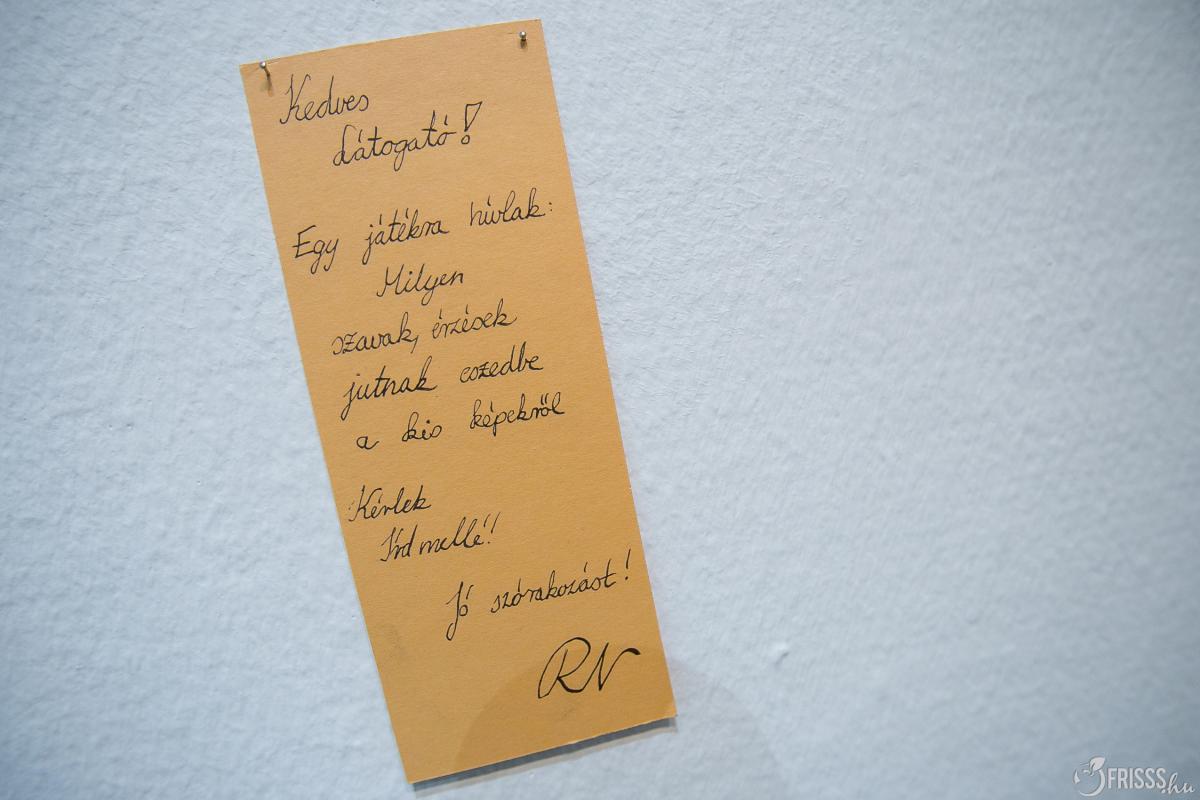 Kedves
Látogató!
Egy játékra hívlak:
Milyen
szavak, érzések
jutnak eszedbe
a kis képekről
Kérlek
Írd mellé!!
Jó szórakozást!
RN
FRISSS.hu